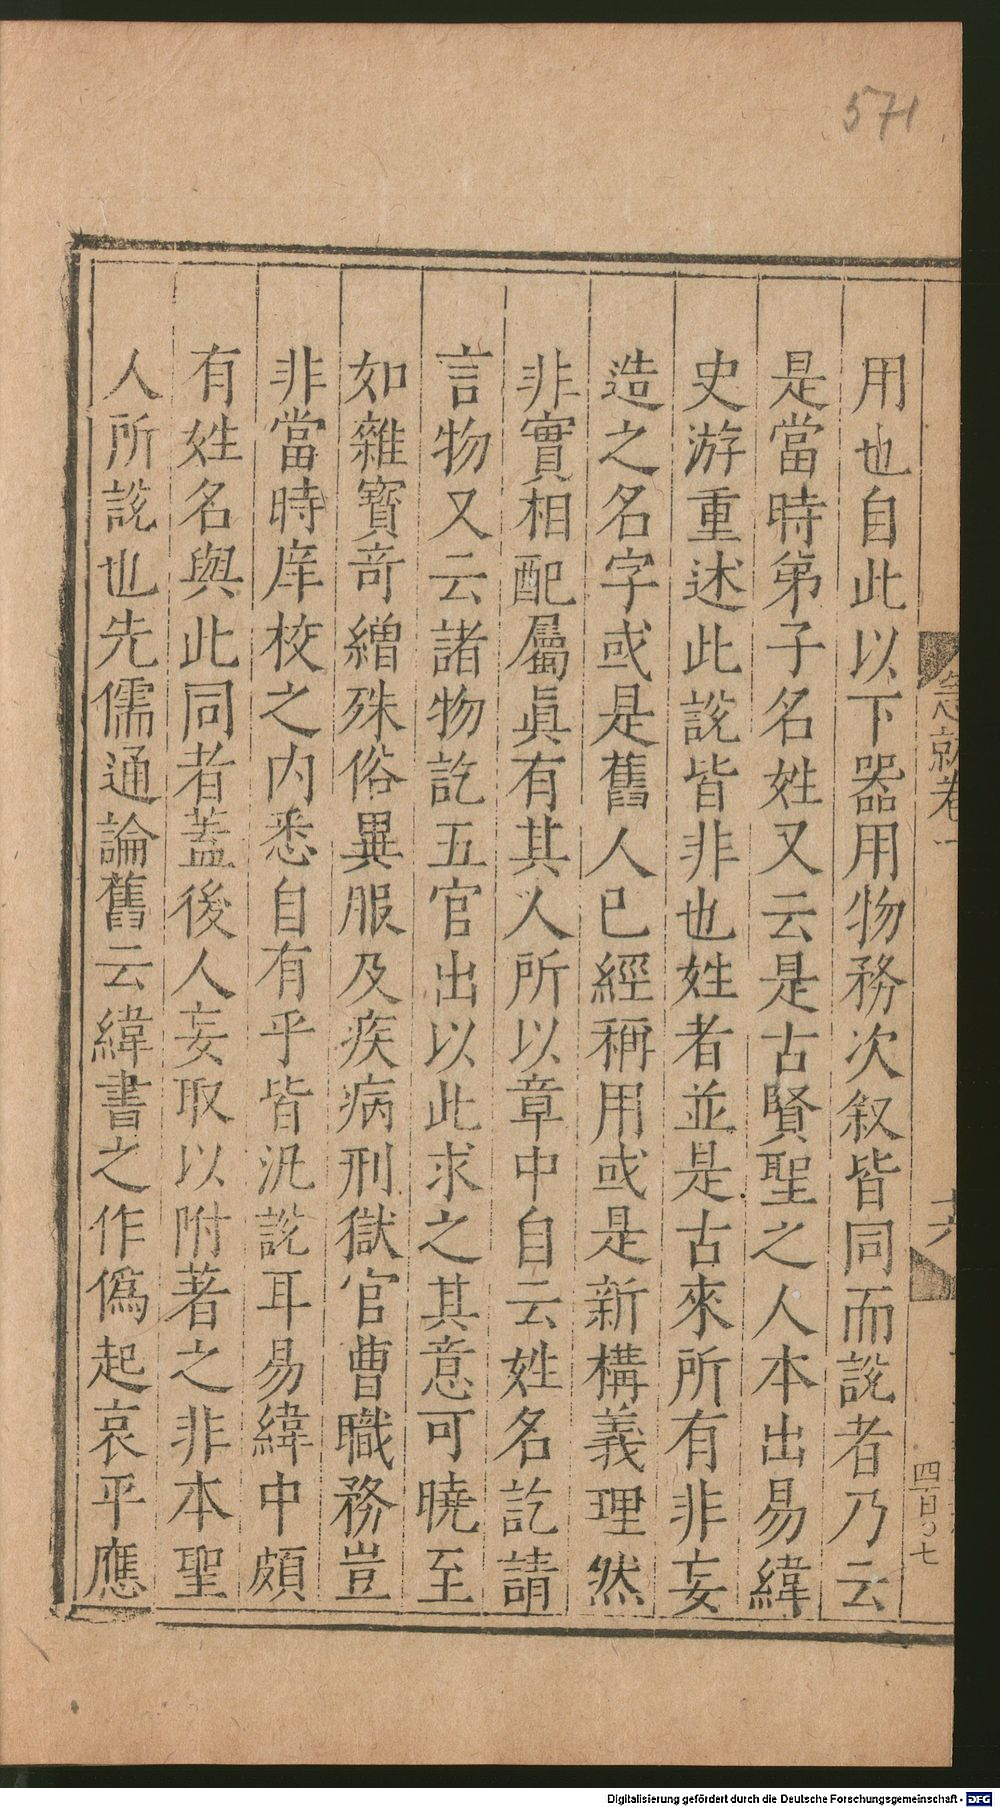 571
急就卷一
十六
四百〇七
用也自此以下器用物務次叙皆同而説者乃云
是當時弟子名姓又云是古賢聖之人本出易緯
史游重述此説皆非也姓者並是古來所有非妄
造之名字或是舊人已經稱用或是新構義理然
非實相配屬眞有其人所以章中自云姓名訖請
言物又云諸物訖五官出以此求之其意可曉至
如雜寶竒繒殊俗異服及疾病刑獄官曹職務豈
非當時庠校之内悉自有乎皆汎説耳易緯中頗
有姓名與此同者蓋後人妄取以附著之非本聖
人所説也先儒通論舊云緯書之作僞起哀平應
Digitalisierung gefördert durch die Deutsche Forschungsgemeinschaft - DFG